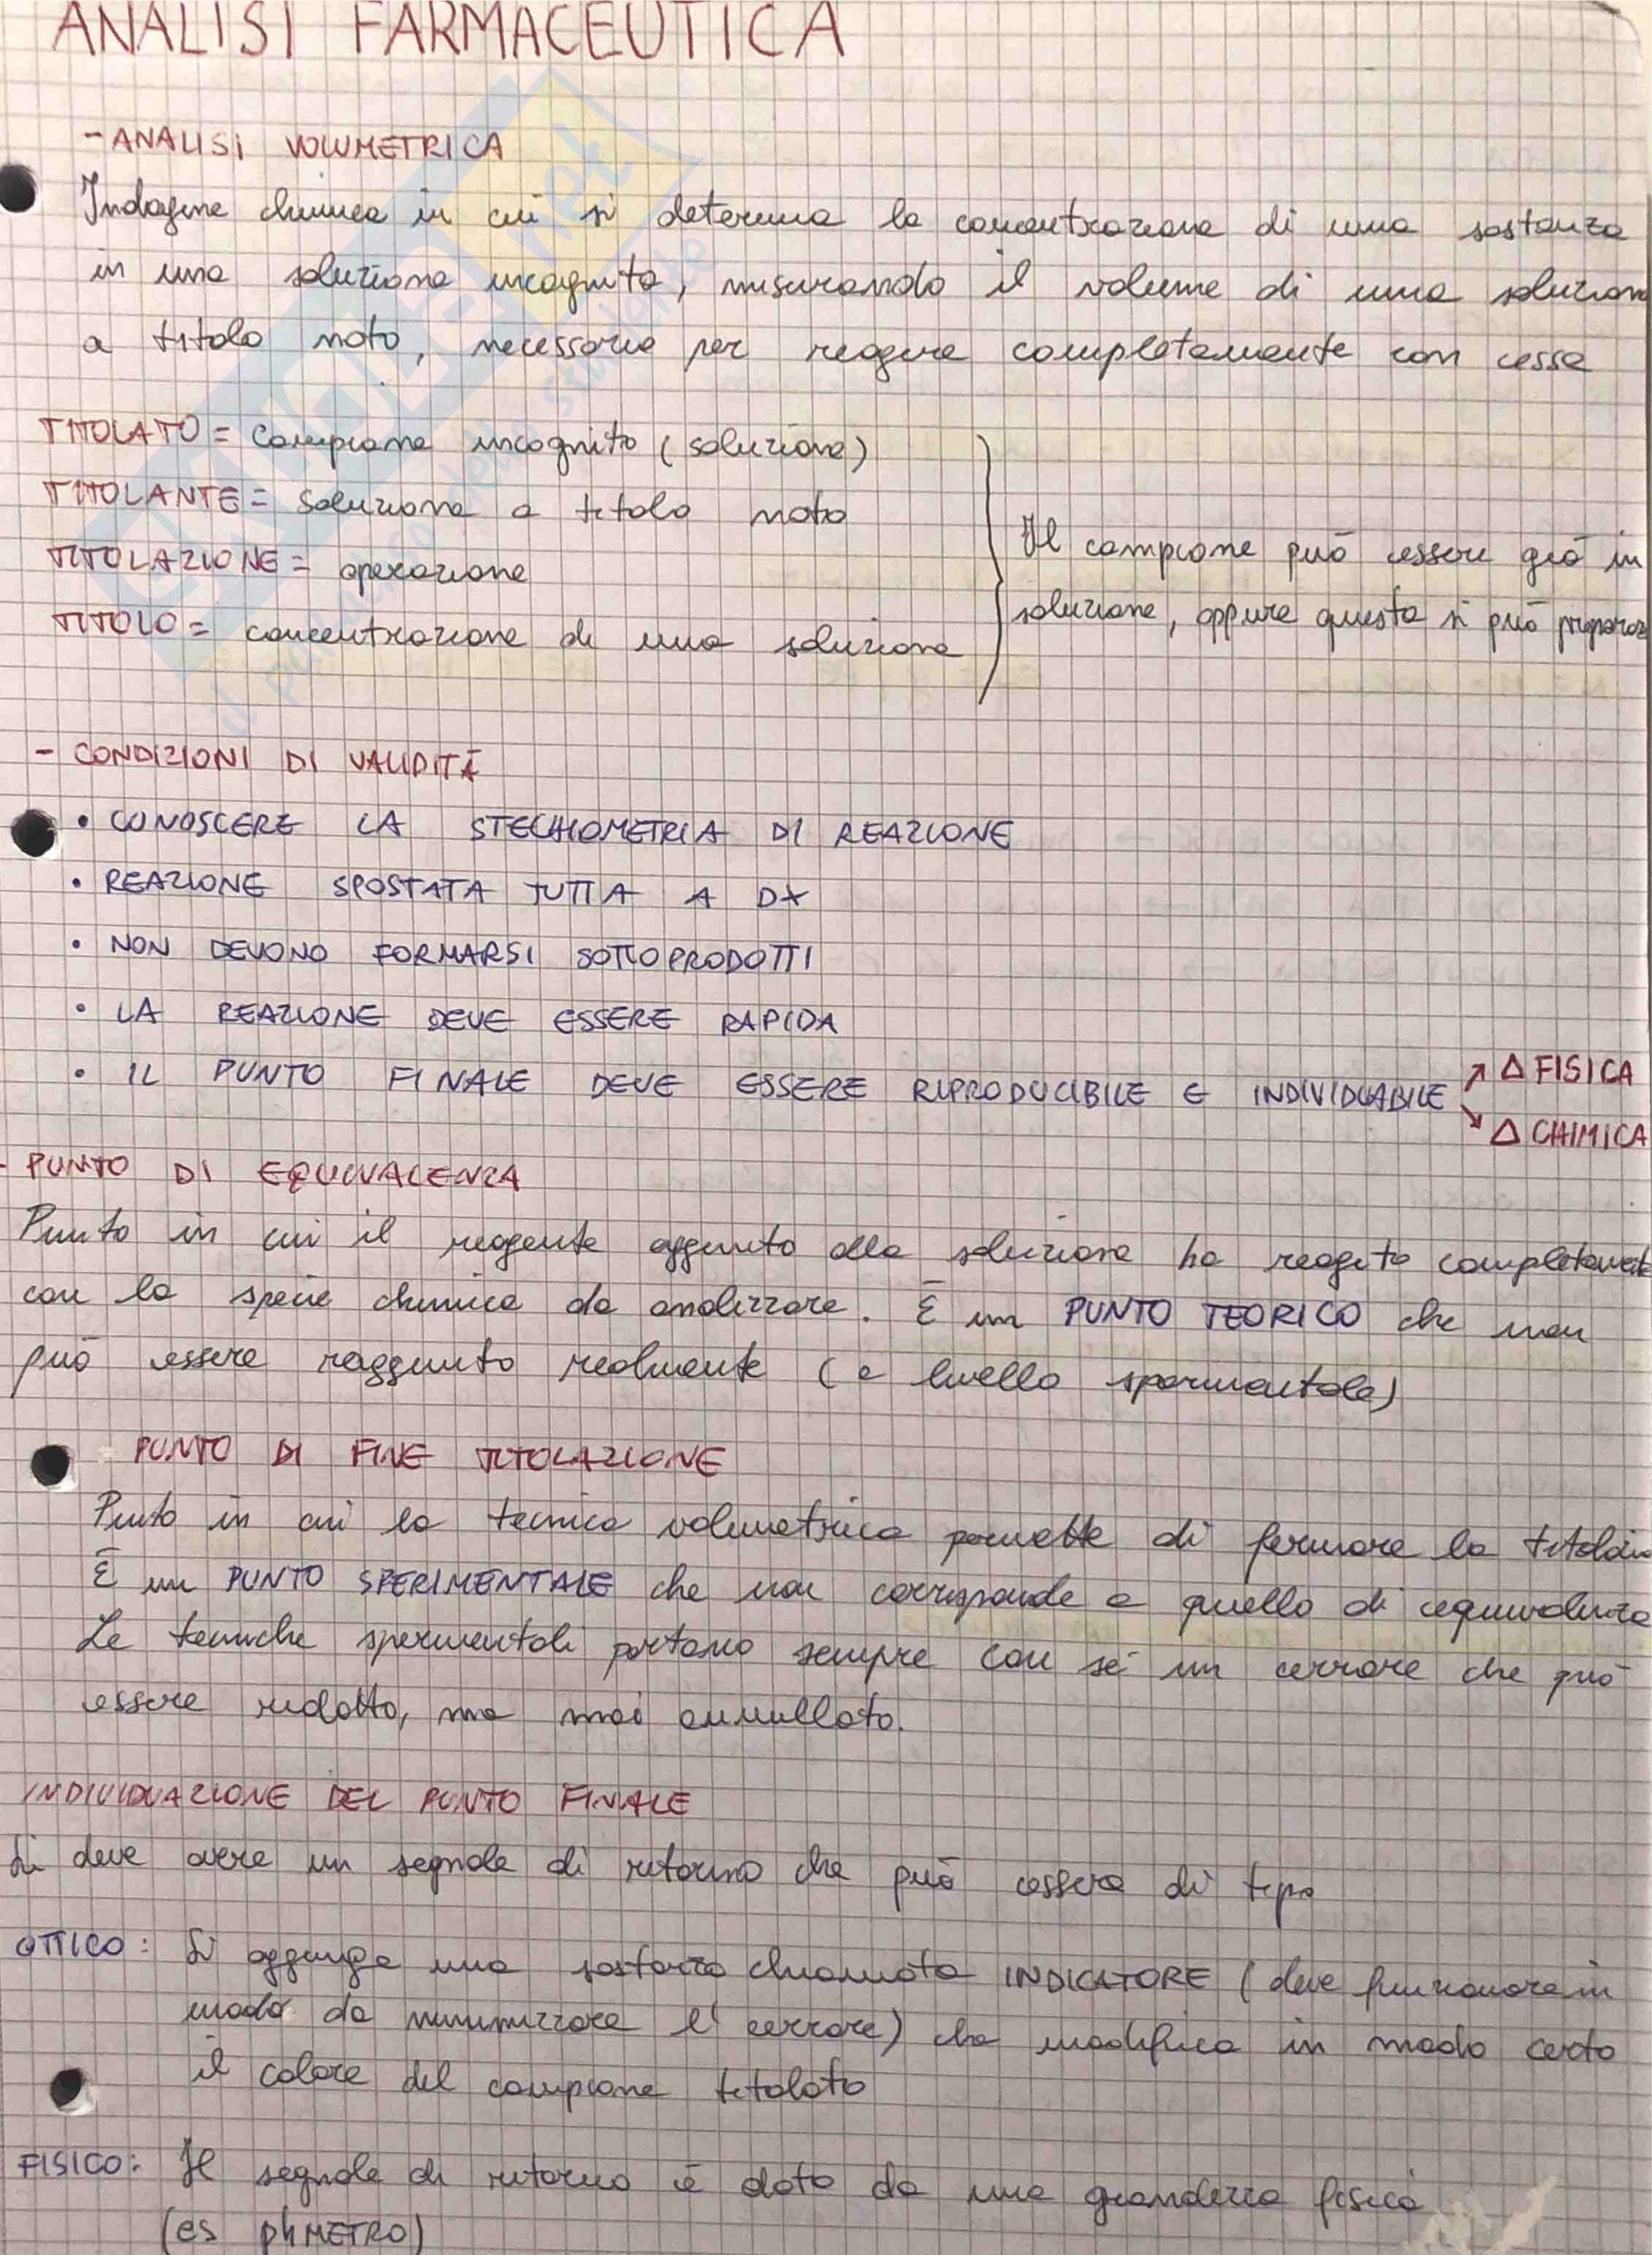 ANALISI FARMACEUTICA
- ANALISI VOLUMETRICA
Indagine chimica in cui si determina la concentrazione di una sostanza
in una soluzione incognita, misurando il volume di una soluzion
a titolo noto, necessario per reagire completamente con essa
TITOLATO = campione incognito (soluzione)
TITOLANTE = soluzione a titolo noto
TITOLAZIONE = operazione
TITOLO = concentrazione di una soluzione
Il campione può essere già in
soluzione, oppure questa si può preparar
- CONDIZIONI DI VALIDITÀ
• CONOSCERE LA STECHIOMETRIA DI REAZIONE
• REAZIONE SPOSTATA TUTTA A DX
• NON DEVONO FORMARSI SOTTOPRODOTTI
• LA REAZIONE DEVE ESSERE RAPIDA
• IL PUNTO FINALE DEVE ESSERE RIPRODUCIBILE E INDIVIDUABILE
↗ Δ FISICA
↘ Δ CHIMICA
- PUNTO DI EQUIVALENZA
Punto in cui il reagente aggiunto alla soluzione ha reagito completamente
con la specie chimica da analizzare. È un PUNTO TEORICO che non
può essere raggiunto realmente (a livello sperimentale)
- PUNTO DI FINE TITOLAZIONE
Punto in cui la tecnica volumetrica permette di fermare la
È un PUNTO SPERIMENTALE che non corrisponde a quello di equivalenza
Le tecniche sperimentali portano sempre con sé un errore che può
essere ridotto, ma mai annullato.
INDIVIDUAZIONE DEL PUNTO FINALE
Si deve avere un segnale di ritorno che può essere di tipo
OTTICO: Si aggiunge una sostanza chiamata INDICATORE (deve funzionare in
modo da minimizzare l'errore) che modifica in modo certo
il colore del campione titolato
FISICO: Il segnale di ritorno è dato da una grandezza fisica
(es pHMETRO)
SKUOLA.net
il paradiso dello studente